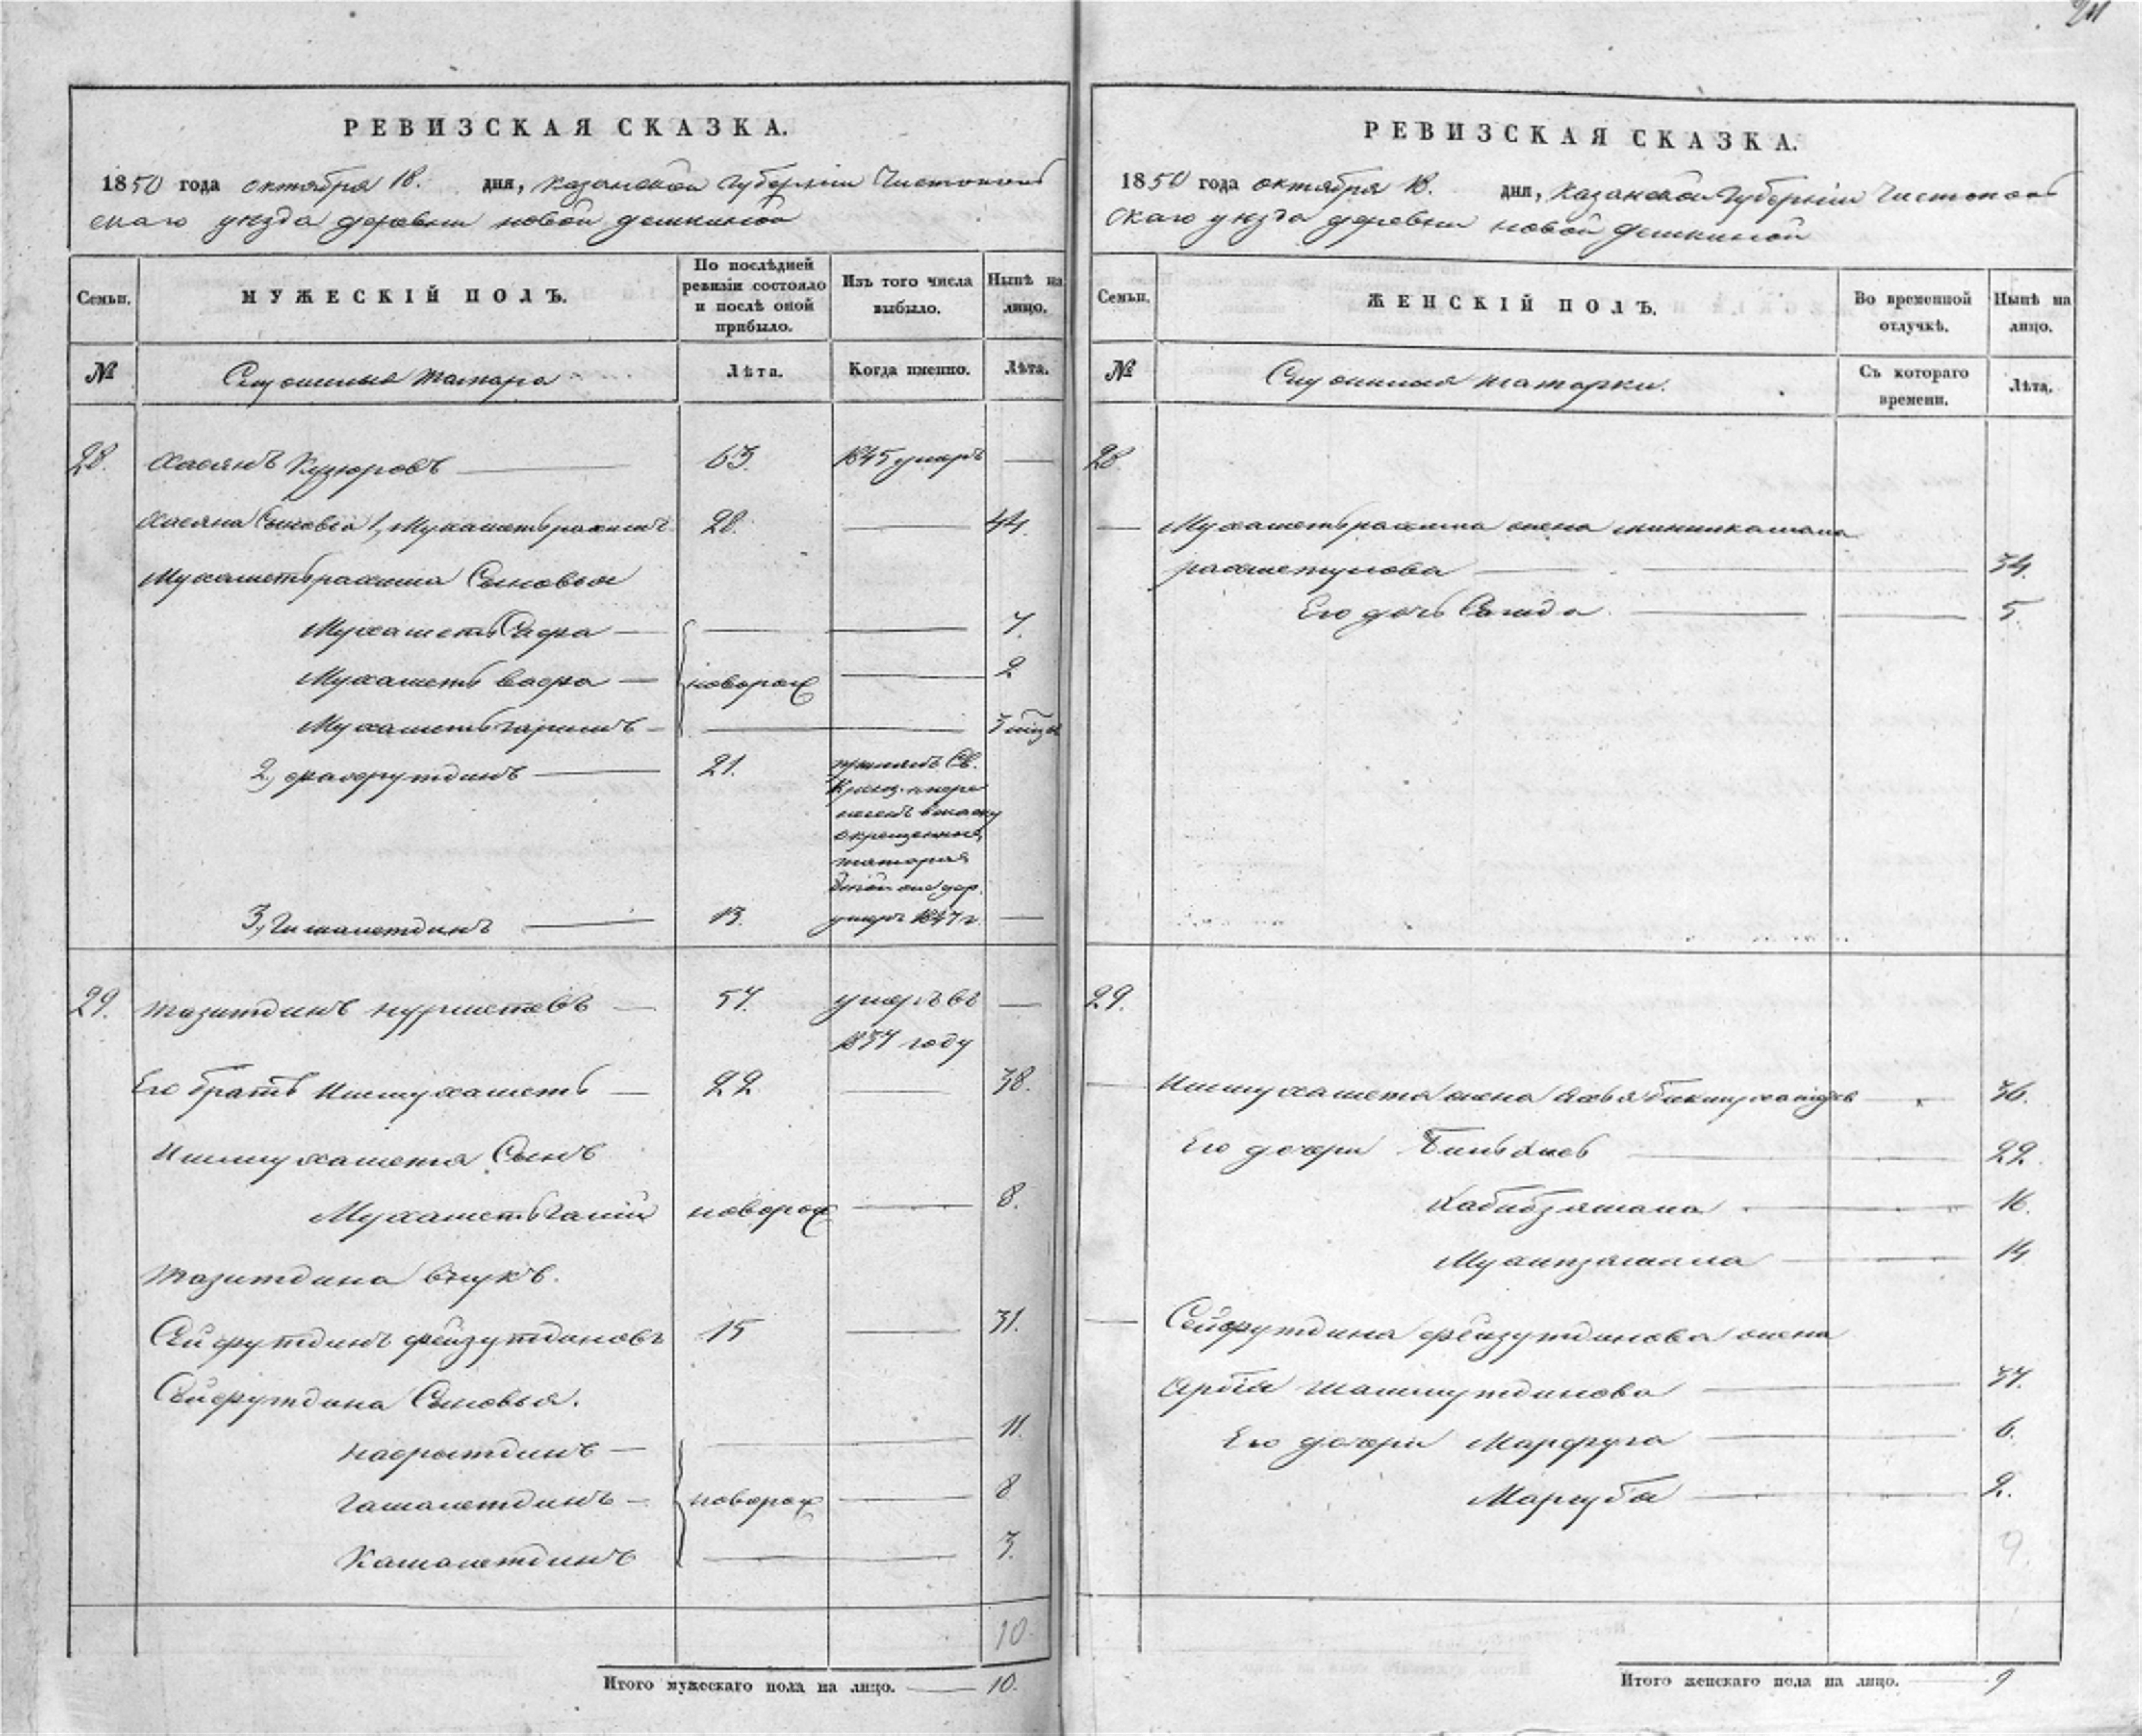 РЕВИЗСКАЯ СКАЗКА.
1850 года октября 18. дня, Казанской Губернiи Чистополь
скаго уѣзда деревни новой
Семьи.
МУЖЕСКІЙ ПОЛЪ.
По послѣдней
ревизіи состояло
и послѣ оной
прибыло.
Изъ того числа
выбыло.
Нынѣ на
лицо.
№
Служилые татара
Лѣта.
Когда именно.
Лѣта.
28. Хасянъ 63. 1845 умеръ
Хасяна Сыновья 1, Мухаметьрахимъ 28. 44.
Мухаметьрахима Сыновья
МухаметьСафа 7.
Мухаметь вафа новорож 2
Мухаметьгаримъ
2, фахрутдинъ 21. принялъ Св.
татаръ
3, Гималетдинъ 13. умеръ 1847 г.
29. тазитдинъ 57. умеръ въ
1837 году
Его братъ Ишмухаметь 22 38.
Ишмухаметя Сынъ
Мухаметьгалiй новорож 8.
тазитдина внукъ.
Сейфутдинъ фейзутдиновъ 15 31.
Сейфутдина Сыновья.
насрытдинъ 11.
гамалетдинъ новорож 8
Камалетдинъ 3.
10.
Итого мужескаго пола на лицо. 10.
РЕВИЗСКАЯ СКАЗКА.
1850 года октября 18. дня, Казанской Губернiи Чистополь
скаго уѣзда деревни новой
Семьи.
ЖЕНСКІЙ ПОЛЪ.
Во временной
отлучкѣ.
Нынѣ на
лицо.
№
Служилыя татарки.
Съ котораго
времени.
Лѣта.
28
Мухаметьрахима жена
рахметулова 34.
Его дочь Сагида 5.
29.
Ишмухаметя жена 36.
Его дочери 22.
Хабибзямала 16.
14.
Сейфутдина фейзутдинова жена
Арбiя шамшутдинова 37.
Его дочери Марфуга 6.
Маргуба 2.
9.
Итого женскаго пола на лицо. 9